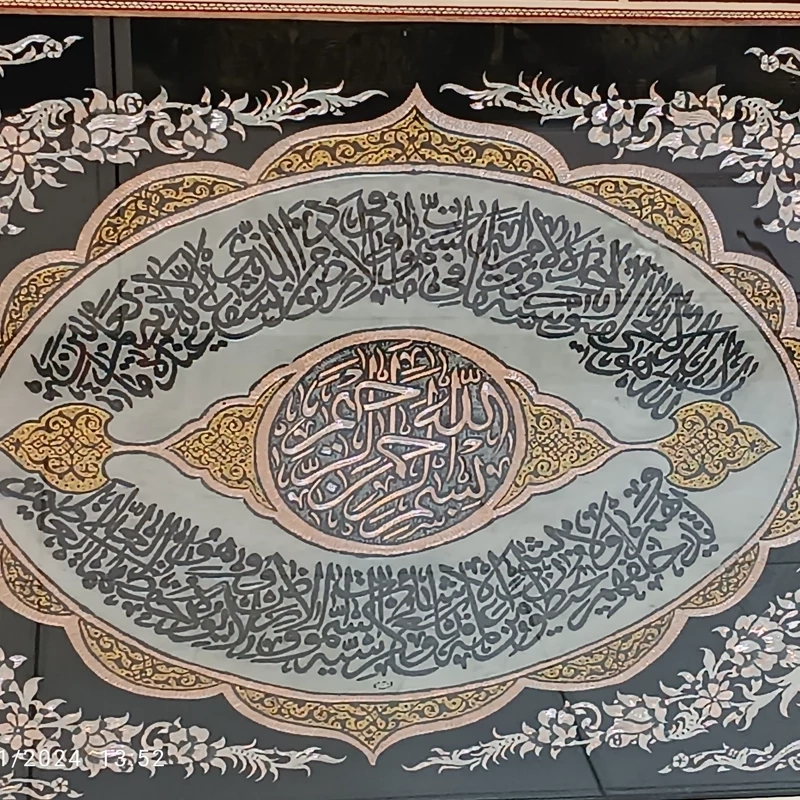 الله لا إله إلا هو الحي القيوم لا تأخذه سنة ولا نوم له ما في السموات وما في الأرض من ذا الذي يشفع عنده إلا بإذنه يعلم ما بين
بسم الله الرحمن الرحيم
أيديهم وما خلفهم ولا يحيطون بشيء من علمه إلا بما شاء وسع كرسيه السموات والأرض ولا يؤده حفظهما وهو العلي العظيم
1/2024 13:52